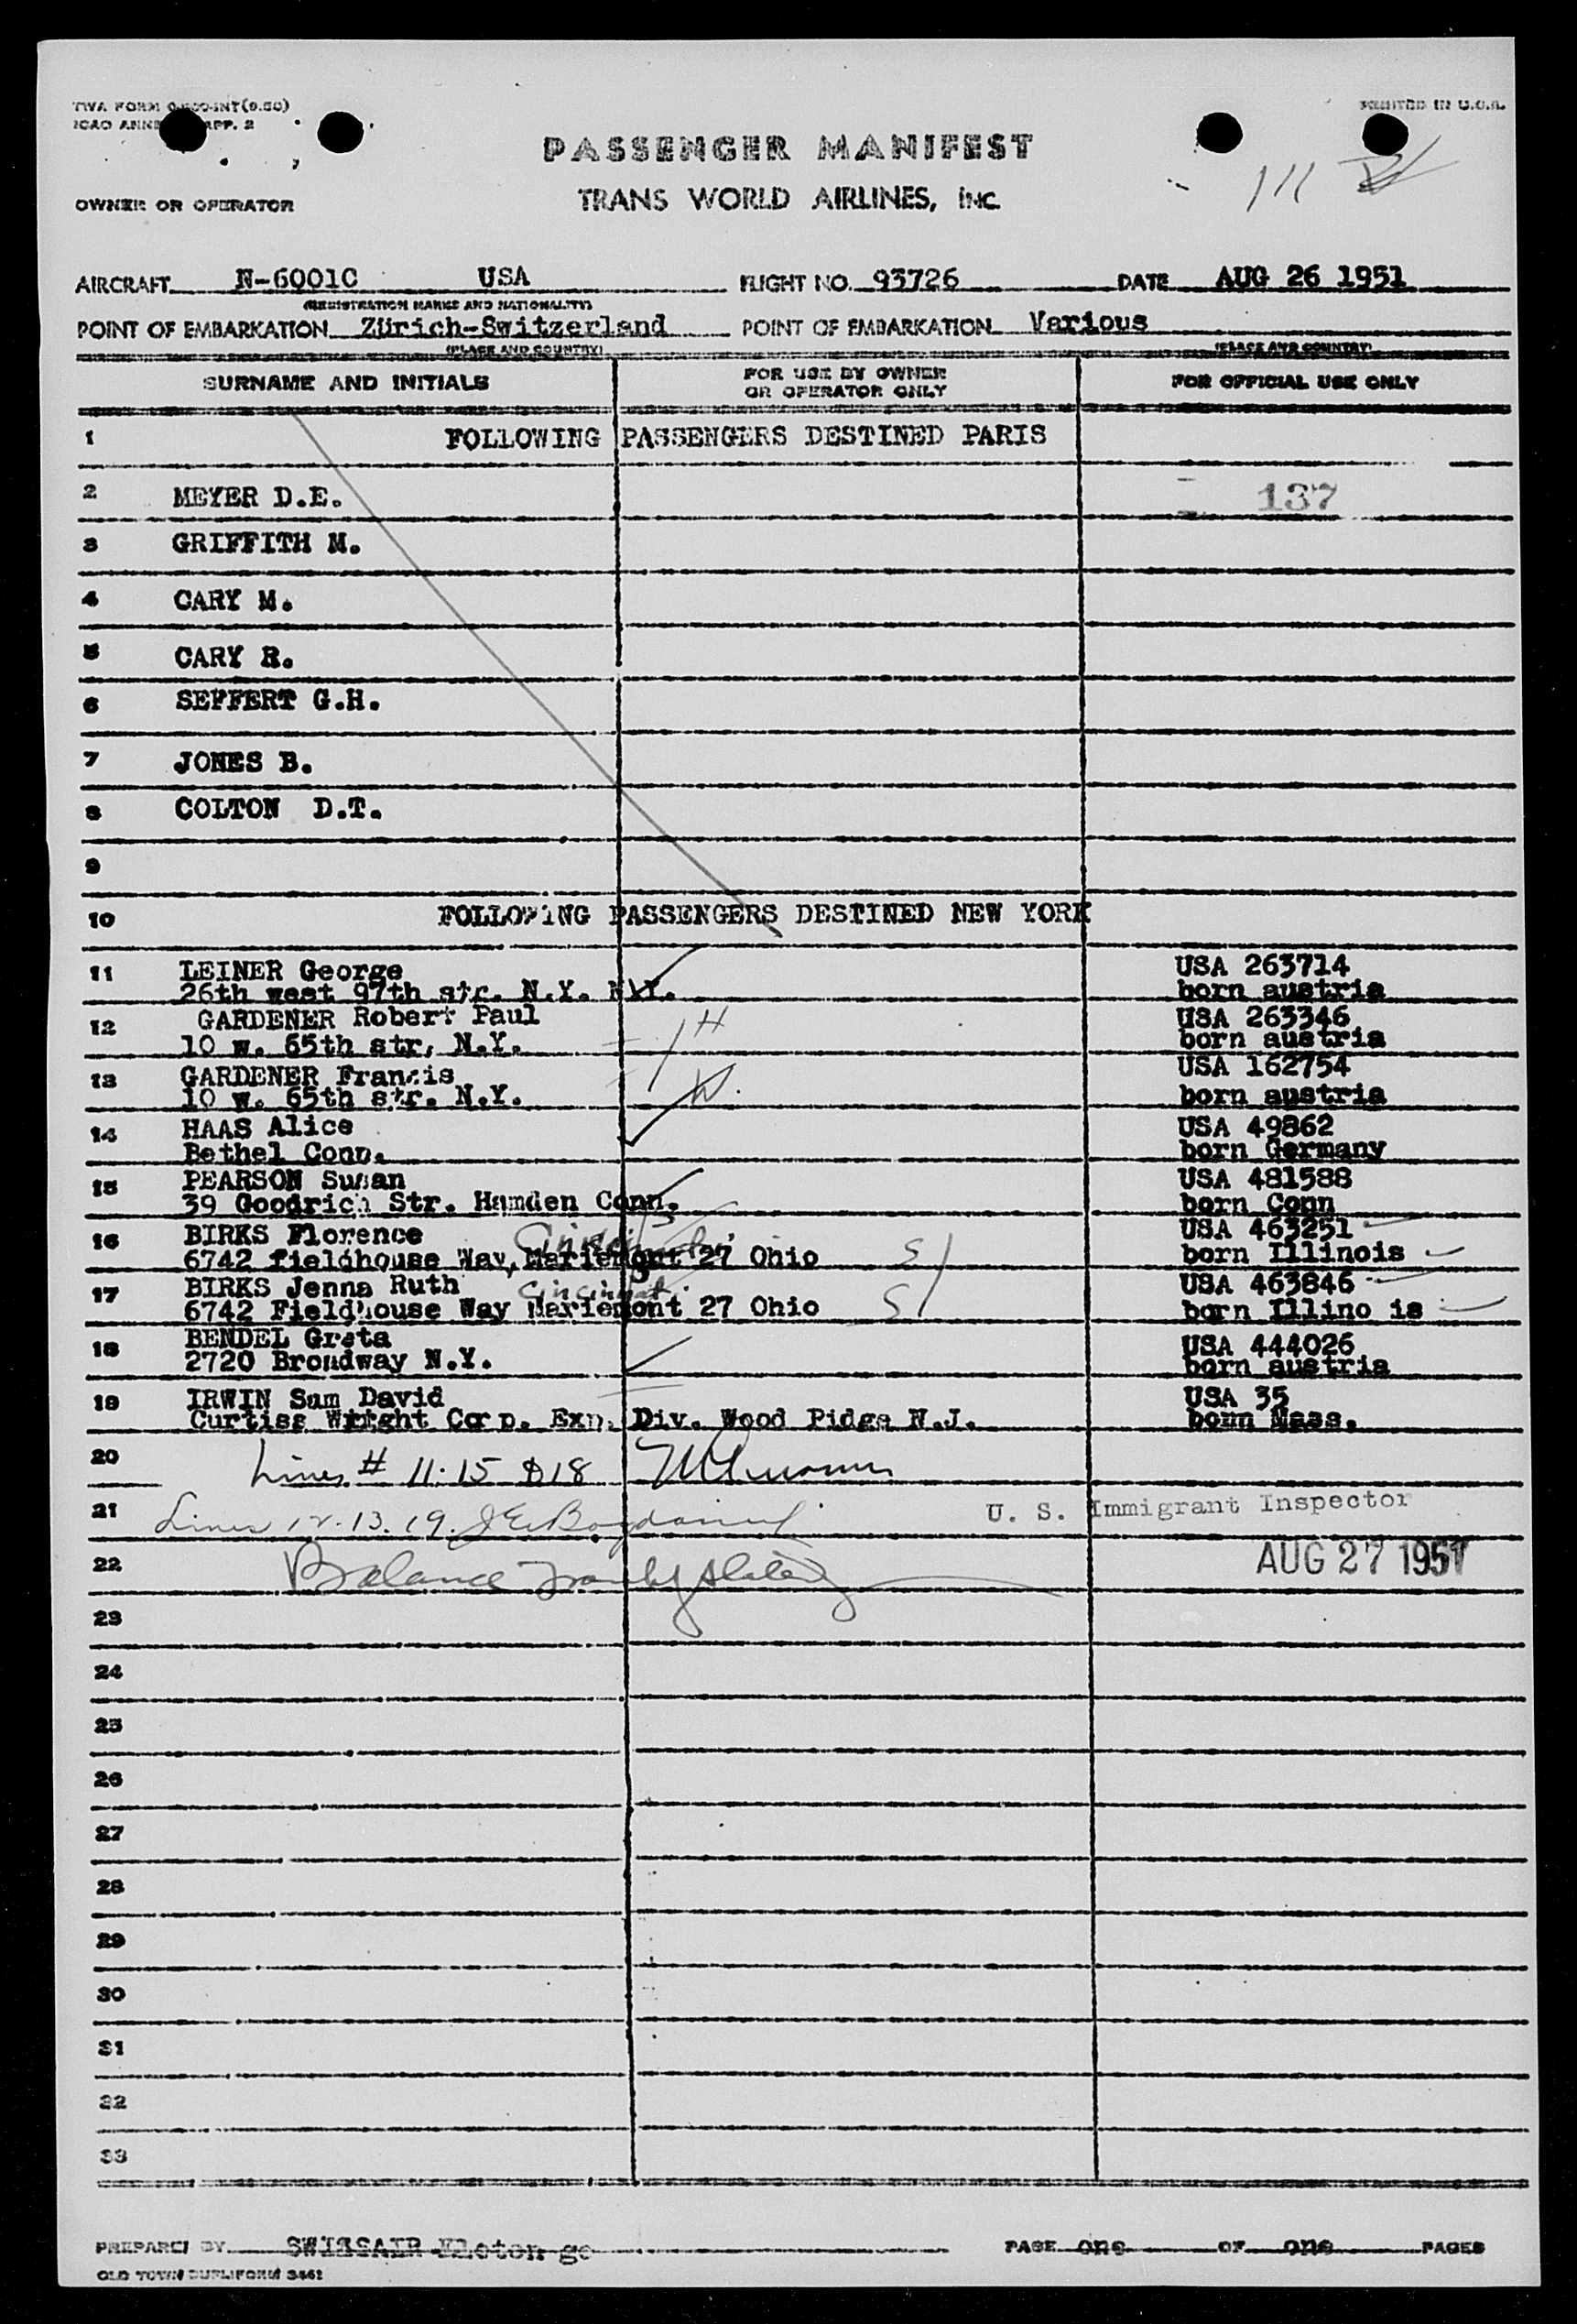 PRINTED IN U.S.A.
ICAO APP. 2
PASSENGER MANIFEST
OWNER OR OPERATOR TRANS WORLD AIRLINES, INC.
111
AIRCRAFT N-6001C USA FLIGHT NO. 93726 DATE AUG 26 1951
(REGISTRATION MARKS AND NATIONALITY)
POINT OF EMBARKATION Zürich-Switzerland POINT OF EMBARKATION Various
(PLACE AND COUNTRY) (PLACE AND COUNTRY)
SURNAME AND INITIALS FOR USE BY OWNER OR OPERATOR ONLY FOR OFFICIAL USE ONLY
1 FOLLOWING PASSENGERS DESTINED PARIS
2 MEYER D.E. 137
3 GRIFFITH M.
4 CARY M.
5 CARY R.
6 SEFFERT G.H.
7 JONES B.
8 COLTON D.T.
9
10 FOLLOWING PASSENGERS DESTINED NEW YORK
11 LEINER George USA 263714
26th west 97th str. N.Y. N.Y. born austria
12 GARDENER Robert Paul USA 263346
10 w. 65th str, N.Y. born austria
13 GARDENER Francis USA 162754
10 w. 65th str. N.Y. born austria
14 HAAS Alice USA 49862
Bethel Conn. born Germany
15 PEARSON Susan USA 481588
39 Goodrich Str. Hamden Conn. born Conn
16 BIRKS Florence USA 463251
6742 fieldhouse Way, Mariemont 27 Ohio born Illinois
17 BIRKS Jenna Ruth Cincinnati USA 463846
6742 Fieldhouse Way Mariemont 27 Ohio born Illino is
18 BENDEL Greta USA 444026
2720 Broadway N.Y. born austria
19 IRWIN Sam David USA 35
Curtiss Wright Corp. Exp. Div. Wood Ridge N.J. born Mass.
20 Lines # 11-15 & 18
21 Lines 12.13.19. U. S. Immigrant Inspector
22 Balance AUG 27 1951
23
24
25
26
27
28
29
30
31
32
33
PREPARED BY SWISSAIR PAGE one OF one PAGES
OLD TOWN DUPLIFORM